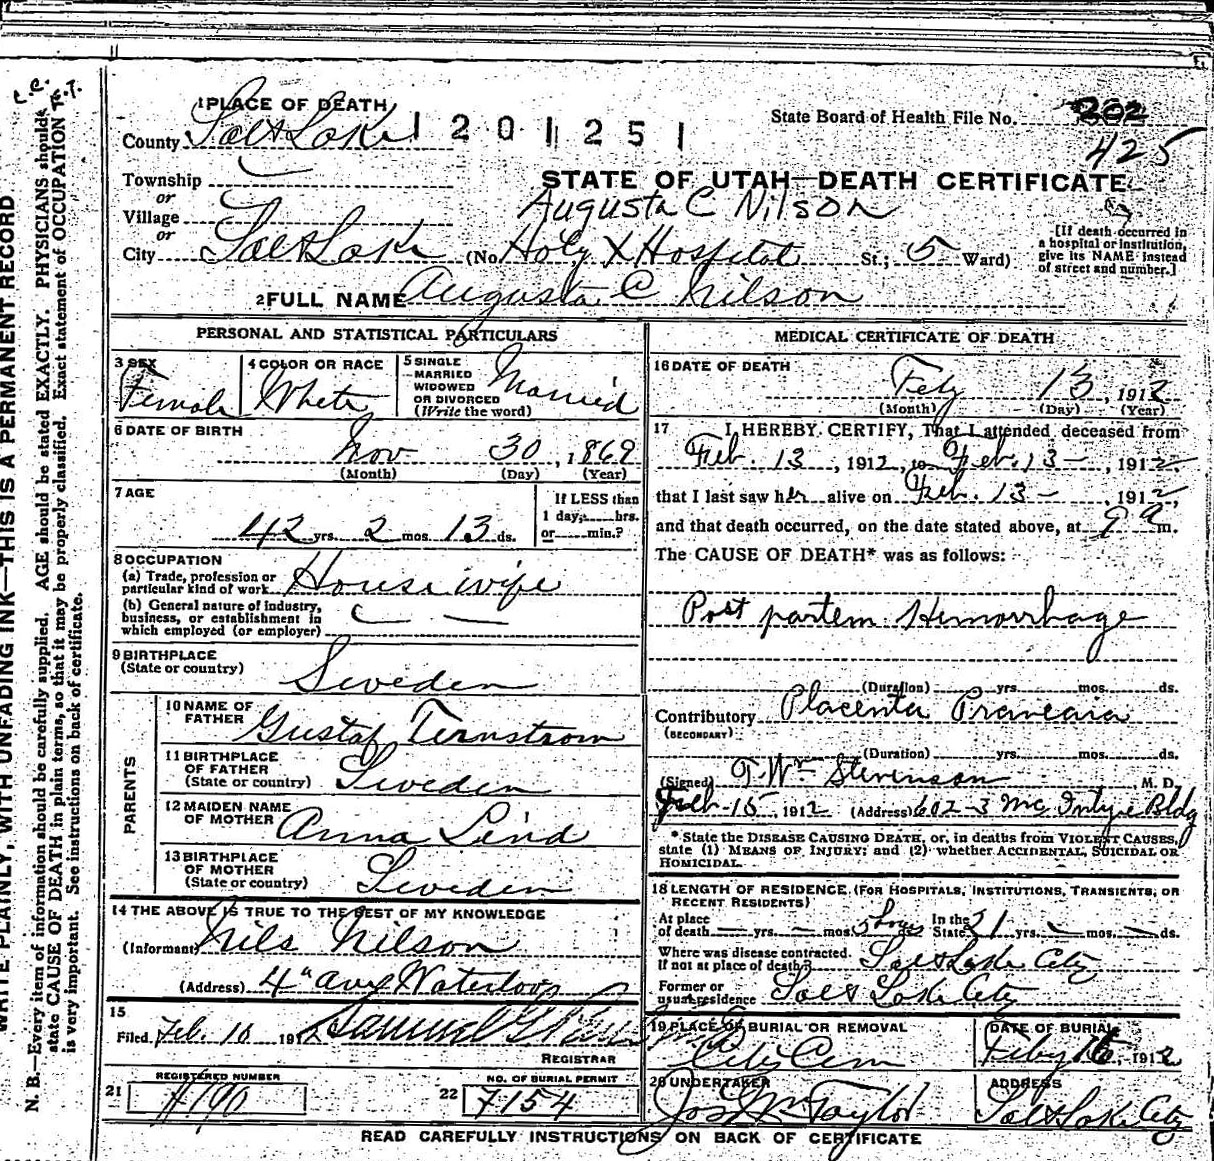 C.C.
F.T.
WRITE PLAINLY, WITH UNFADING INK—THIS IS A PERMANENT RECORD
N. B.—Every item of information should be carefully supplied. AGE should be stated EXACTLY. PHYSICIANS should
state CAUSE OF DEATH in plain terms, so that it may be properly classified. Exact statement of OCCUPATION
is very important. See instructions on back of certificate.
1 PLACE OF DEATH
County Salt Lake 1201251
State Board of Health File No. 202
425
Township
or
Village
or
City Salt Lake (No. Holy X Hospital St.; 5 Ward)
STATE OF UTAH—DEATH CERTIFICATE
Augusta C Nilson
[If death occurred in
a hospital or institution,
give its NAME instead
of street and number.]
2 FULL NAME Augusta C Nilson
PERSONAL AND STATISTICAL PARTICULARS
3 SEX
Female
4 COLOR OR RACE
White
5 SINGLE
MARRIED
WIDOWED
OR DIVORCED
(Write the word)
Married
6 DATE OF BIRTH
Nov 30, 1869
(Month) (Day) (Year)
7 AGE
42 yrs. 2 mos. 13 ds.
If LESS than
1 day, hrs.
or min.?
8 OCCUPATION
(a) Trade, profession or
particular kind of work House wife
(b) General nature of industry,
business, or establishment in
which employed (or employer)
9 BIRTHPLACE
(State or country)
Sweden
PARENTS
10 NAME OF
FATHER Gustaf Ternstrom
11 BIRTHPLACE
OF FATHER
(State or country) Sweden
12 MAIDEN NAME
OF MOTHER Anna Lind
13 BIRTHPLACE
OF MOTHER
(State or country) Sweden
14 THE ABOVE IS TRUE TO THE BEST OF MY KNOWLEDGE
(Informant) Nils Nilson
(Address) 4" ave Waterloo
15
Filed Feb. 16 1912 Samuel G
REGISTRAR
21 REGISTERED NUMBER
H190
22 NO. OF BURIAL PERMIT
7154
MEDICAL CERTIFICATE OF DEATH
16 DATE OF DEATH
Feby 13, 1912
(Month) (Day) (Year)
17 I HEREBY CERTIFY, That I attended deceased from
Feb. 13, 1912, to Feb. 13, 1912
that I last saw her alive on Feb. 13, 1912,
and that death occurred, on the date stated above, at 9 a m.
The CAUSE OF DEATH* was as follows:
Post partem Hemorrhage
(Duration) yrs. mos. ds.
Contributory Placenta Praveaia
(SECONDARY)
(Duration) yrs. mos. ds.
(Signed) T. Wm Stevenson M. D.
Feb-15, 1912 (Address) 602-3 McIntyre Bldg
* State the DISEASE CAUSING DEATH, or, in deaths from VIOLENT CAUSES,
state (1) MEANS OF INJURY; and (2) whether ACCIDENTAL, SUICIDAL OR
HOMICIDAL.
18 LENGTH OF RESIDENCE (FOR HOSPITALS, INSTITUTIONS, TRANSIENTS, OR
RECENT RESIDENTS)
At place
of death yrs. mos. 5 hours In the
State 21 yrs. mos. ds.
Where was disease contracted,
If not at place of death? Salt Lake City
Former or
usual residence Salt Lake City
19 PLACE OF BURIAL OR REMOVAL
City Cem
DATE OF BURIAL
Feby 16, 1912
20 UNDERTAKER
Jos Wm Taylor
ADDRESS
Salt Lake City
READ CAREFULLY INSTRUCTIONS ON BACK OF CERTIFICATE